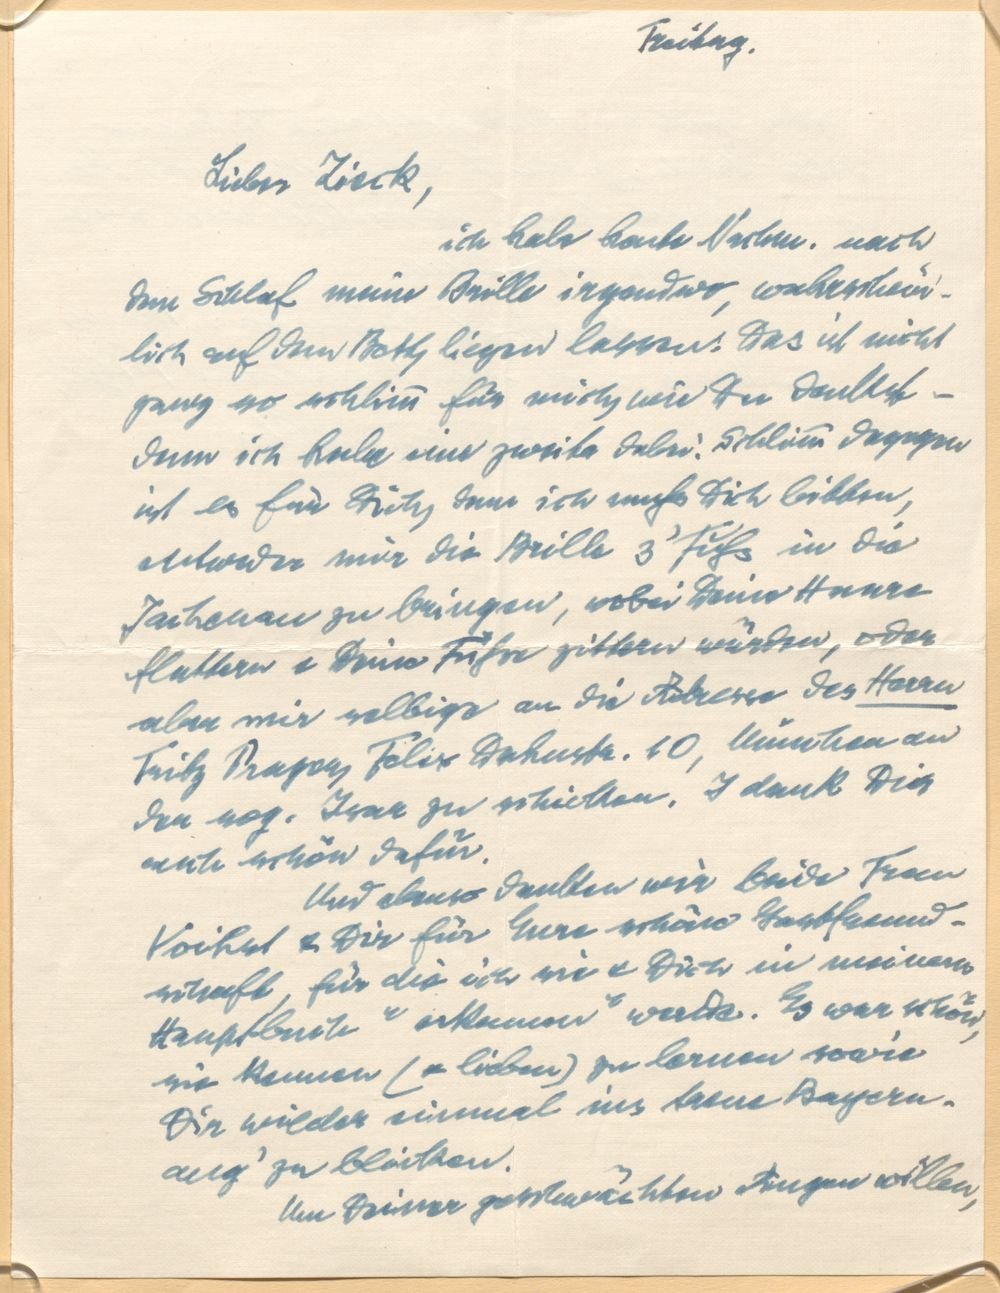 Freitag.
Lieber Zieck,
ich habe heute Nachm. nach
dem Schlaf meine Brille irgendwo, wahrschein-
lich auf dem Bett, liegen lassen. Das ist nicht
ganz so schlimm̅ für mich, wie Du denkst –
denn ich habe eine zweite dabei. Schlim̅ dagegen
ist es für Dich, denn ich muss Dich bitten,
entweder mir die Brille z' Fuss in die
Jachenau zu bringen, wobei Deine Haare
flattern & Deine Füsse zittern würden, oder
aber mir selbige an die Adresse des Herrn
Fritz Pragers, Felix Dahnstr. 10, München an
der sog. Isar zu schicken. I dank Dir
auch schön dafür.
Und ebenso danken wir beide Frau
& Dir für Eure schöne Gastfreund-
schaft, für die ich sie & Dich in meinem
Hauptbuch "erkennen" werde. Es war schön,
sie kennen (& lieben) zu lernen sowie
Dir wieder einmal ins treue Bayern-
aug' zu blicken.
Um Deiner geschwächten Augen willen,